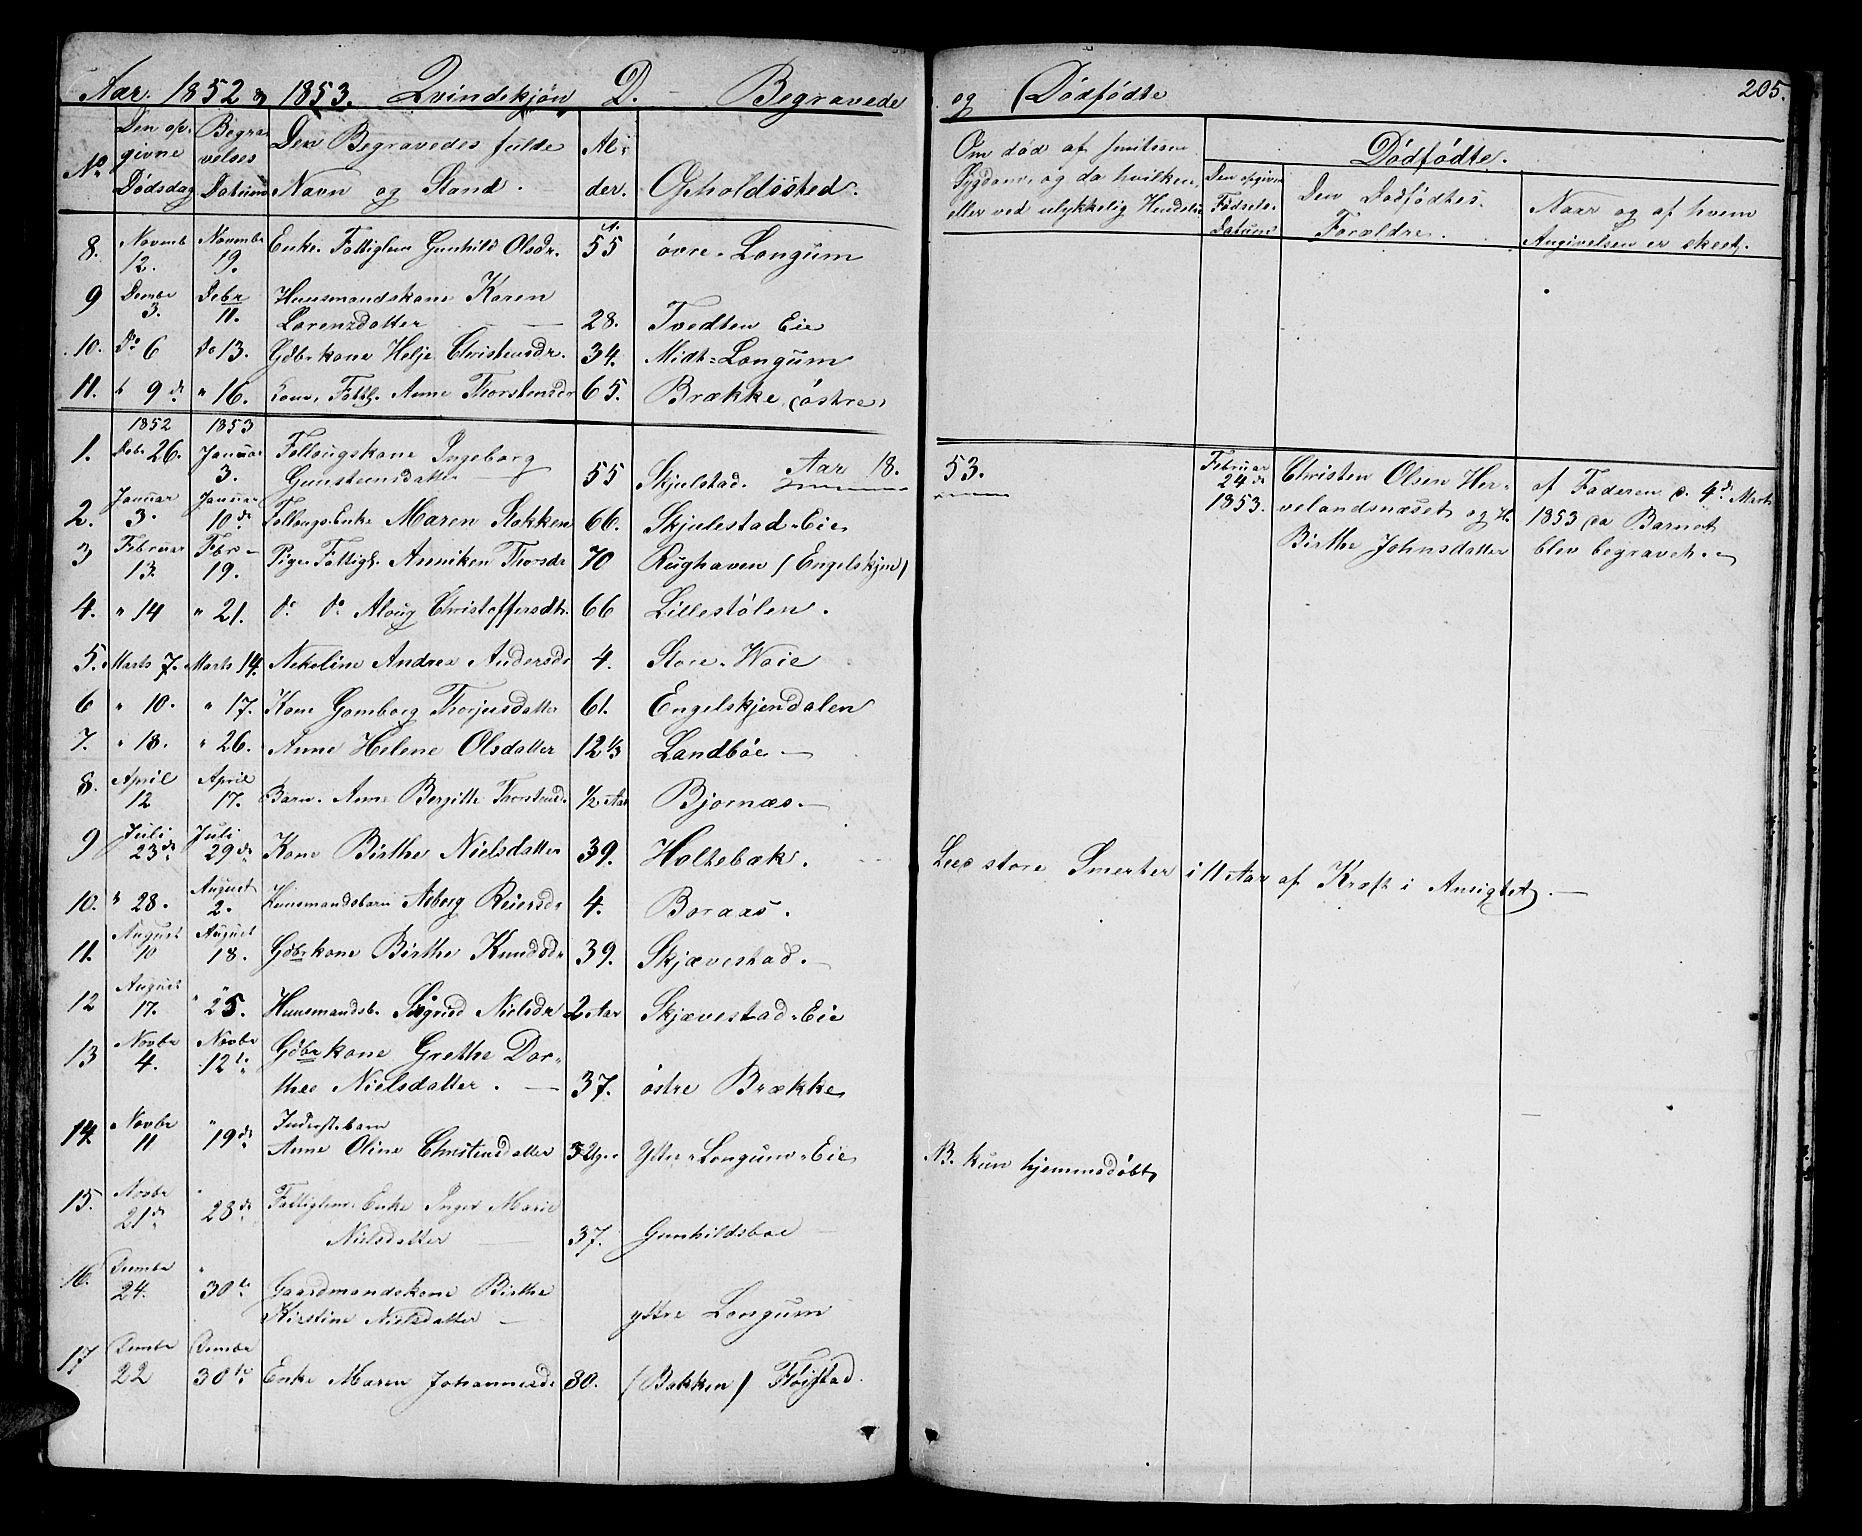 Aar 1852 & 1853. Qvindekjön D. – Begravede og Dödfödte 205.
No
Den op-
givne
Dödsdag
Begra-
velses
Datum
Den Begravedes fulde
Navn og Stand.
Al-
der.
Opholdssted.
Om död af smitsom
Sygdom, og da hvilken,
eller ved ulykkelig Hendelse
Dödfödte.
Den opgivne
Födsels-
Datum
Den Dödfödtes
Forældre.
Naar og af hvem
Angivelsen er skeet.
8. Novemb 12. Novembr 19. Enke. Fattiglem Gunhild Olsdr. 55 övre-Longum
9 Dembr 3. Debr 11. Huusmandskone Karen
Lorenzdatter — 28. Tvedten Eie
10. Do 6 Do 13. Gdbrkone Helje Christensdr. 34. Midt-Longum
11. " 9de " 16. Kone, Fattigl. Anne Thorstensdr 65. Brække (östre)
1852 1853
1. Debr 26. Januar 3. Follougskone Ingeborg
Gunsteensdatter 55 Skjulstad. Aar 18. 53.
2. Januar 3. Januar 10de Follougs-Enke Maren Slokken 66. Skjulestad-Eie
3 Februar 13. Febr- 19. Pige Fattigl. Anniken Thorsdr 70 Rughaven (Engelskjen)
4. " 14 " 21. do do Aloug Christoffersdtr. 66 Lillestölen.
5. Marts 7. Marts 14. Nekoline Andrea Andersdr 4. Store-Woie
6 " 10. " 17. Kone Gomborg Thorjusdatter 61. Engelskjendalen
7. " 18. " 26. Anne Helene Olsdatter 12 1/3 Landböe —
8. April 12 April 17. Barn. Anne Bergitte Thorstensd. 1/2 Aar Bjornæs. —
9 Juli 23de Juli 29de Kone Birthe Nielsdatter 39. Holtebæk. Leed store Smerter i 11 Aar af Kræft i Ansigtet. —
10. " 28. August 2. Huusmandsbarn Asborg Reiersdr 4. Boraas.
11. August 10 August 18. Gdbrkone Birthe Knudsdr 39. Skjævestad. —
12 August 17. " 25. Huusmandsb. Sigrid Nielsdr 2 Aar Skjævestad-Eie
13 Novbr 4. Novbr 12te Gdbrkone Grethe Dor-
thee Nielsdatter. — 37. östre Brække
14. Novbr 11 " 19de Inderstebarn
Anne Oline Christensdatter 3 Uger Ytre-Longum-Eie NB. kun hjemmedöbt
15. Novbr 21de " 28de Fattiglem. Enke Inger Marie
Nielsdatter — 37. Gunhildsboe —
16. Dembr 24. " 30te Gaardmandskone Birthe
Kirstine Nielsdatter — ystre Longum
17 Dembr 22 Dembr 30te Enke Maren Johannesdr 80. (Bakken) Flöistad.
Februar
24de
1853.
Christen Olsen Her-
velandsnæset og H.
Birthe Johnsdatter
af Faderen d. 4de Marts
1853 da Barnet
blev begravet. —